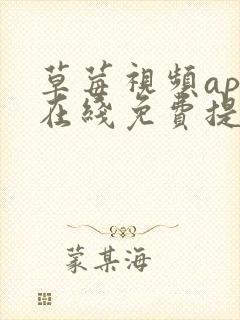 草莓視頻ap
在綫免費提
蒙某海